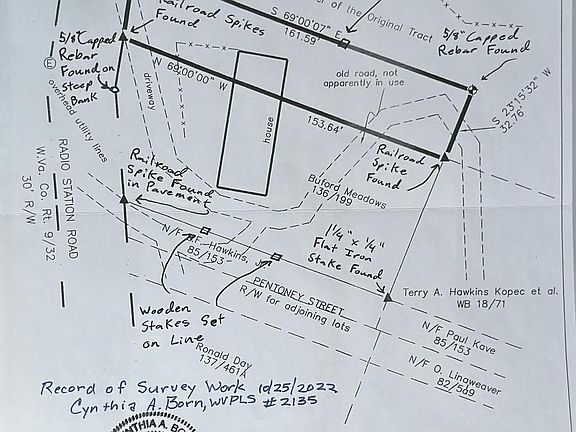 Railroad Spikes
Found
S 69°00'07" E
161.59'
of the Original Tract
5/8" Capped
Rebar Found
5/8" Capped
Rebar
Found on
Steep
Bank
N 69°00'00" W
driveway
overhead utility lines
house
old road, not
apparently in use
153.64'
S 23°15'32" W
32.76'
Railroad
Spike
Found
RADIO STATION ROAD
W.Va. Co. Rt. 9/32
30' R/W
Railroad
Spike Found
in Pavement
Buford Meadows
136/199
1 1/4" x 1/4"
Flat Iron
Stake Found
N/F
Hawkins,
85/153
PENTONEY STREET
R/W for adjoining lots
Terry A. Hawkins Kopec et al.
WB 18/71
Wooden
Stakes Set
on Line
N/F Paul Kave
85/153
N/F O. Linaweaver
82/569
Ronald Day
137/461A
Record of Survey Work 10/25/2022
Cynthia A. Born, WVPLS #2135